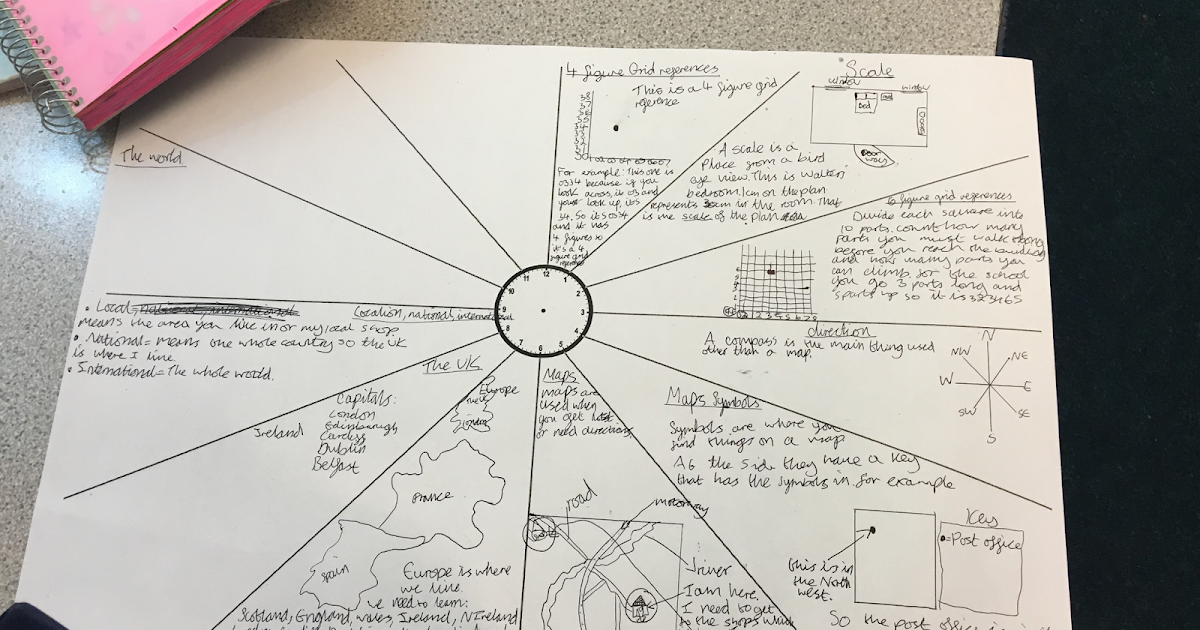 4 figure Grid references
This is a 4 figure grid
reference
For example: This one is
0334 because if you
look across, it 03 and
your look up, its
34. So its 0334
and it has
4 figures so
it's a 4
figure grid
reference
Scale
window
window
Bed
Door
A scale is a
Place from a bird
eye view. This is
bedroom. 1cm on the plan
represents in the room. That
is the scale of the plan
6 figure grid references
Divide each square into
10 parts. count how many
parts you must walk along
before you reach the building
and how many parts you
can climb. for the school
you go 3 parts long and
5 parts up so it is 323465
direction
A compass is the main thing used
other than a map.
N
NE
E
SE
S
SW
W
NW
Maps Symbols
Symbols are where you
find things on a map
At the side they have a key
that has the symbols in. for example
Key
=Post office
this is in
the North
west.
So the post office is
Maps
maps are
used when
you get lost
or need directions
road
motorway
river
I am here.
I need to get
to the shops which
The UK
Capitals:
London
Edinbraugh
Cardiff
Dublin
Belfast
Ireland
Europe
France
Spain
Europe is where
we live.
we need to learn:
Scotland, England, wales, Ireland, N Ireland
Location, national, international
• Local
means the area you live in or my local shop.
• National = means one whole country so the UK
is where I live.
• International = The whole world.
The world
12
1
2
3
4
5
6
7
8
9
10
11